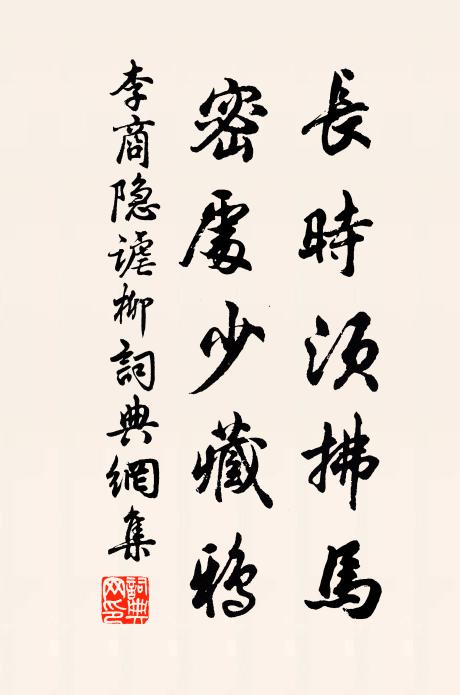 長時須拂馬
密處少藏鴉
李商隐謔柳詞典網集
詞典网印